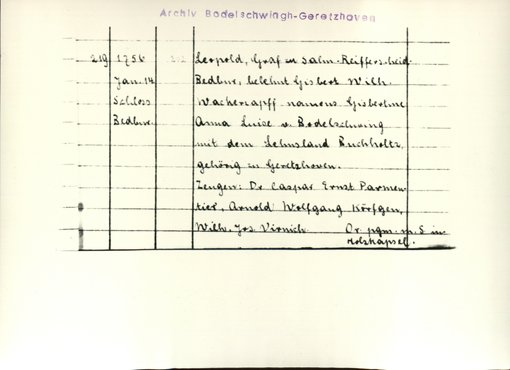 Archiv Bodelschwingh-Geretzhoven
219 1756 Leopold, Graf zu Salm-Reifferscheid-
Jan. 14 Bedbur, belehnt Gisbert Wilh.
Schloss Wachenzapff namens Gisbertine
Bedbur. Anna Luise v. Bodelschwing
mit dem Lehnsland Buchholtz,
gehörig zu Geretzhoven.
Zeugen: Dr. Caspar Ernst Parmen-
tier, Arnold Wolfgang Körfgen,
Wilh. Jos. Virnich Or. pgm. m. S in
Holzkapsel.